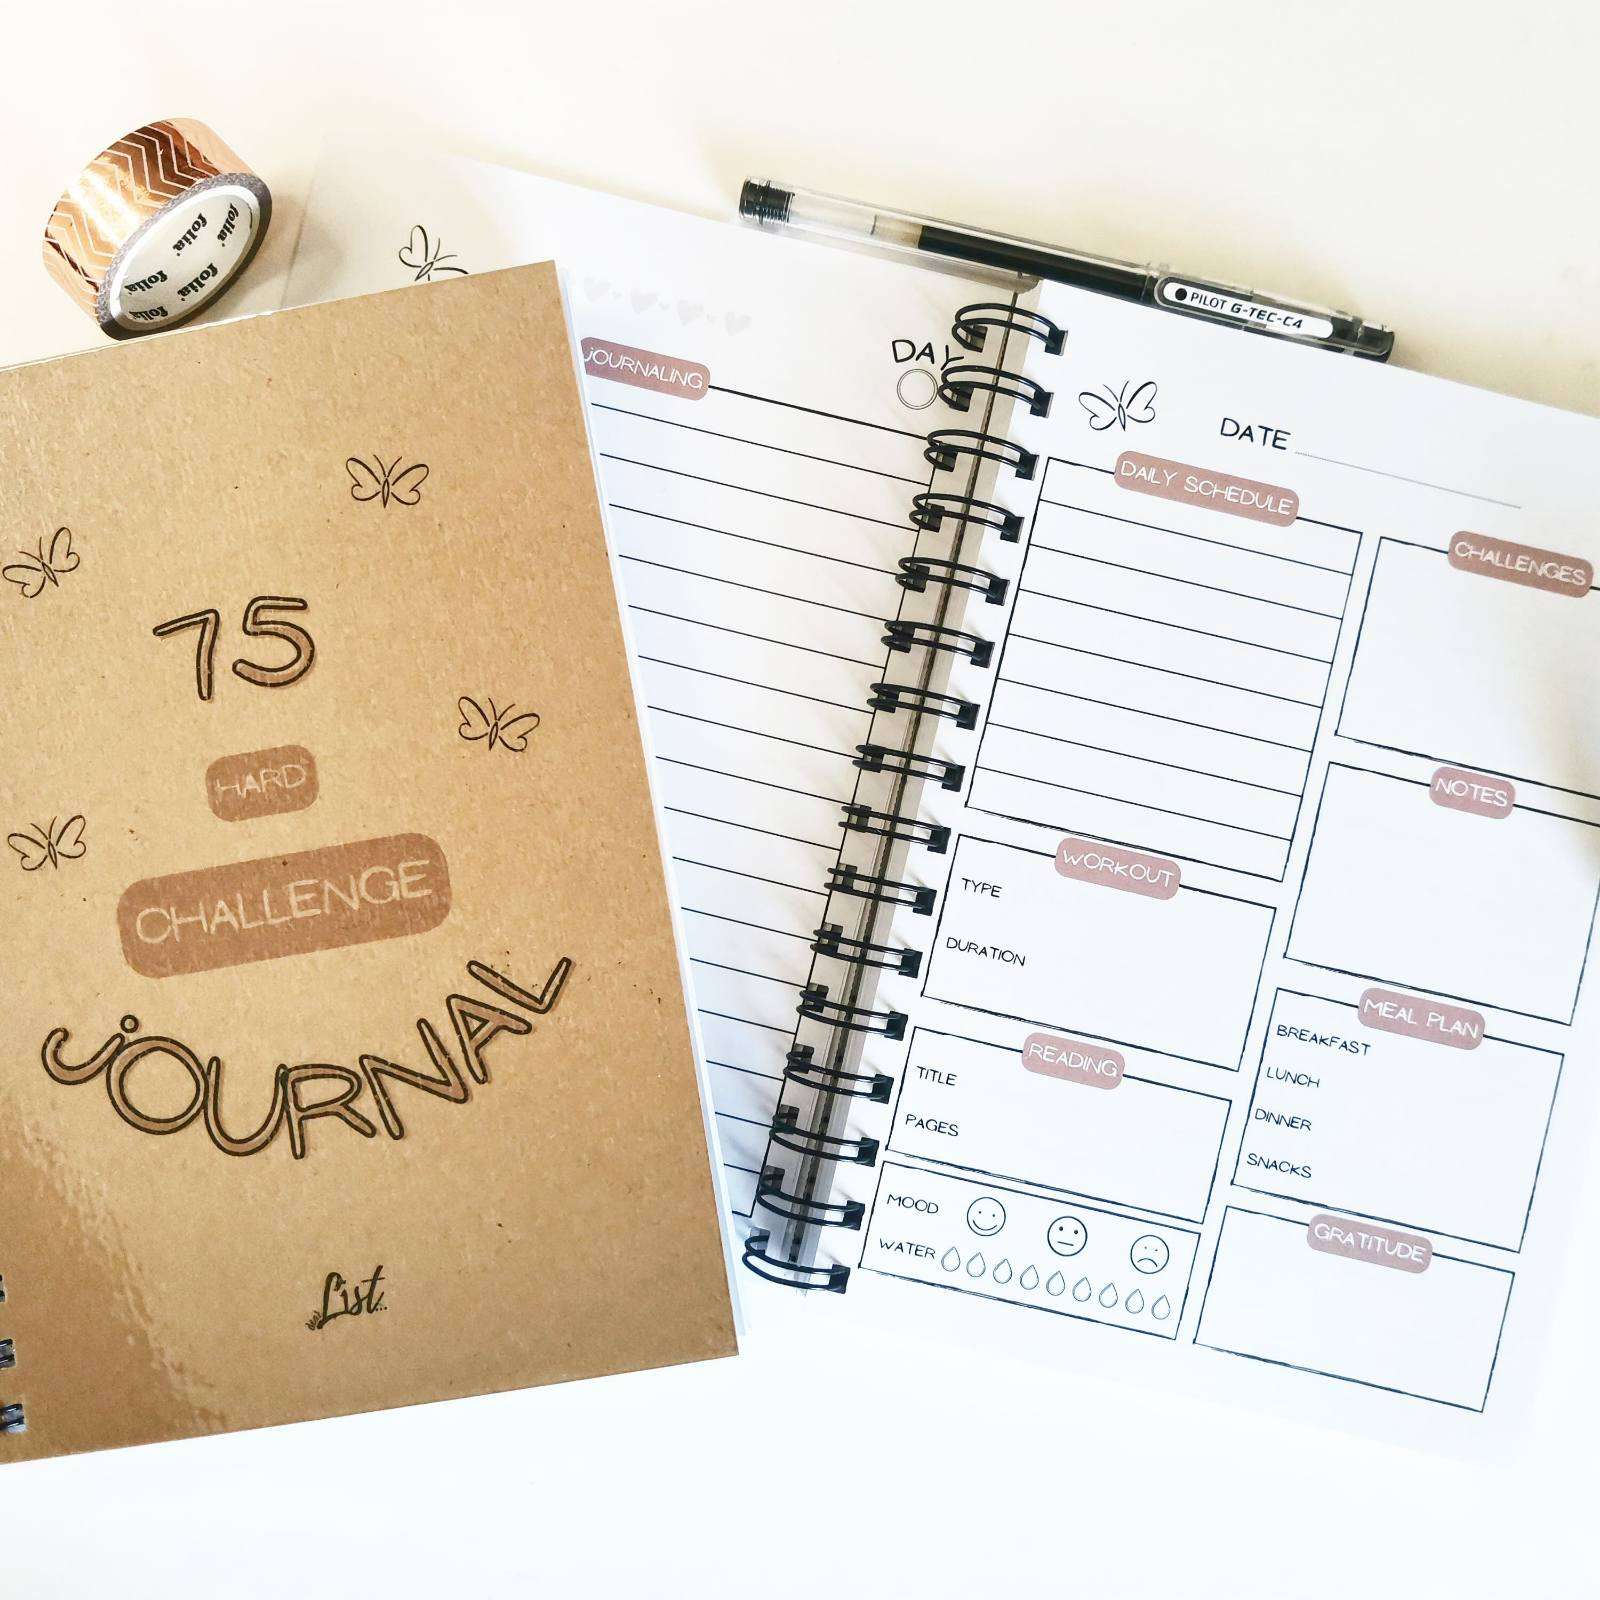 folia
folia
folia
folia
PILOT G-TEC-C4
75
HARD
CHALLENGE
JOURNAL
dear List...
JOURNALING
DAY
DATE
DAILY SCHEDULE
CHALLENGES
NOTES
WORKOUT
TYPE
DURATION
READING
TITLE
PAGES
MEAL PLAN
BREAKFAST
LUNCH
DINNER
SNACKS
MOOD
WATER
GRATITUDE